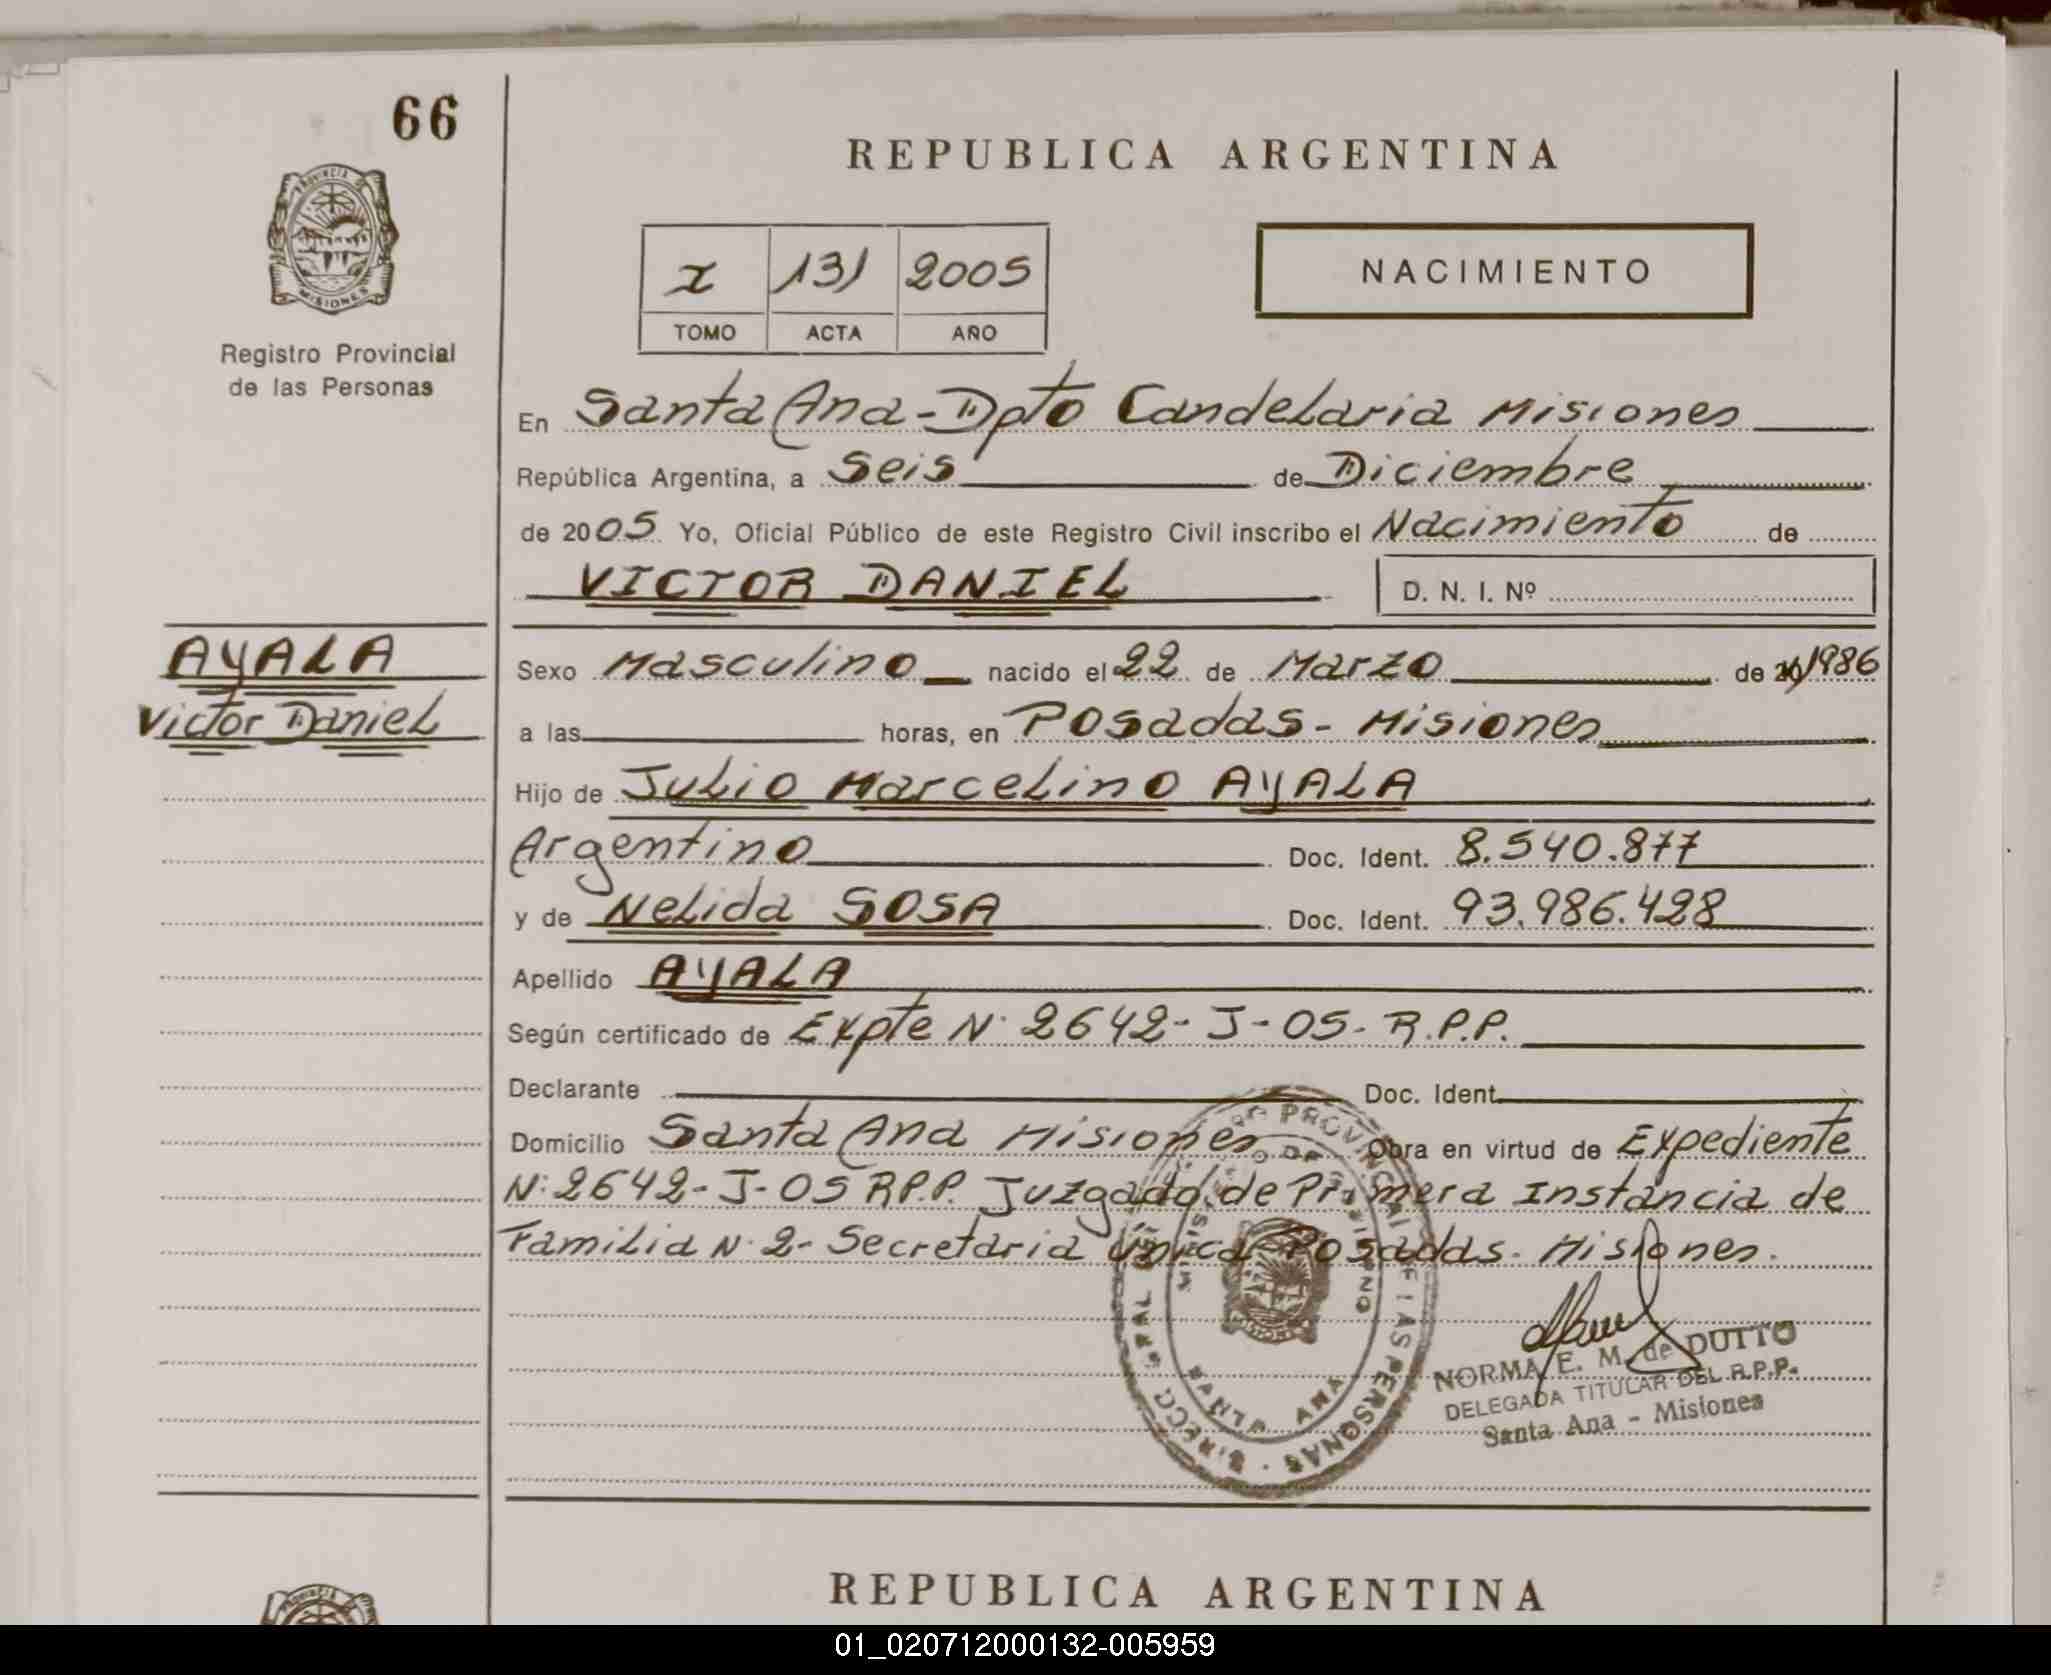 66
PROVINCIA DE
MISIONES
Registro Provincial
de las Personas
REPUBLICA ARGENTINA
I 131 2005
TOMO ACTA AÑO
NACIMIENTO
En Santa Ana - Dpto Candelaria Misiones
República Argentina, a Seis de Diciembre
de 2005 Yo, Oficial Público de este Registro Civil inscribo el Nacimiento de
VICTOR DANIEL D. N. I. Nº
AYALA
Victor Daniel
Sexo Masculino nacido el 22 de Marzo de 20 1986
a las horas, en Posadas - Misiones
Hijo de Julio Marcelino AYALA
Argentino Doc. Ident. 8.540.877
y de Nelida SOSA Doc. Ident. 93.986.428
Apellido AYALA
Según certificado de Expte N. 2642- J- 05- R.P.P.
Declarante Doc. Ident.
Domicilio Santa Ana Misiones Obra en virtud de Expediente
N: 2642- J- 05 R.P.P. Juzgado de Primera Instancia de
Familia N. 2- Secretaria Unica Posadas- Misiones.
PROVINCIAL DE LAS PERSONAS
SANTA ANA
NORMA E. M. de DUTTO
DELEGADA TITULAR DEL R.P.P.
Santa Ana - Misiones
REPUBLICA ARGENTINA
01_020712000132-005959